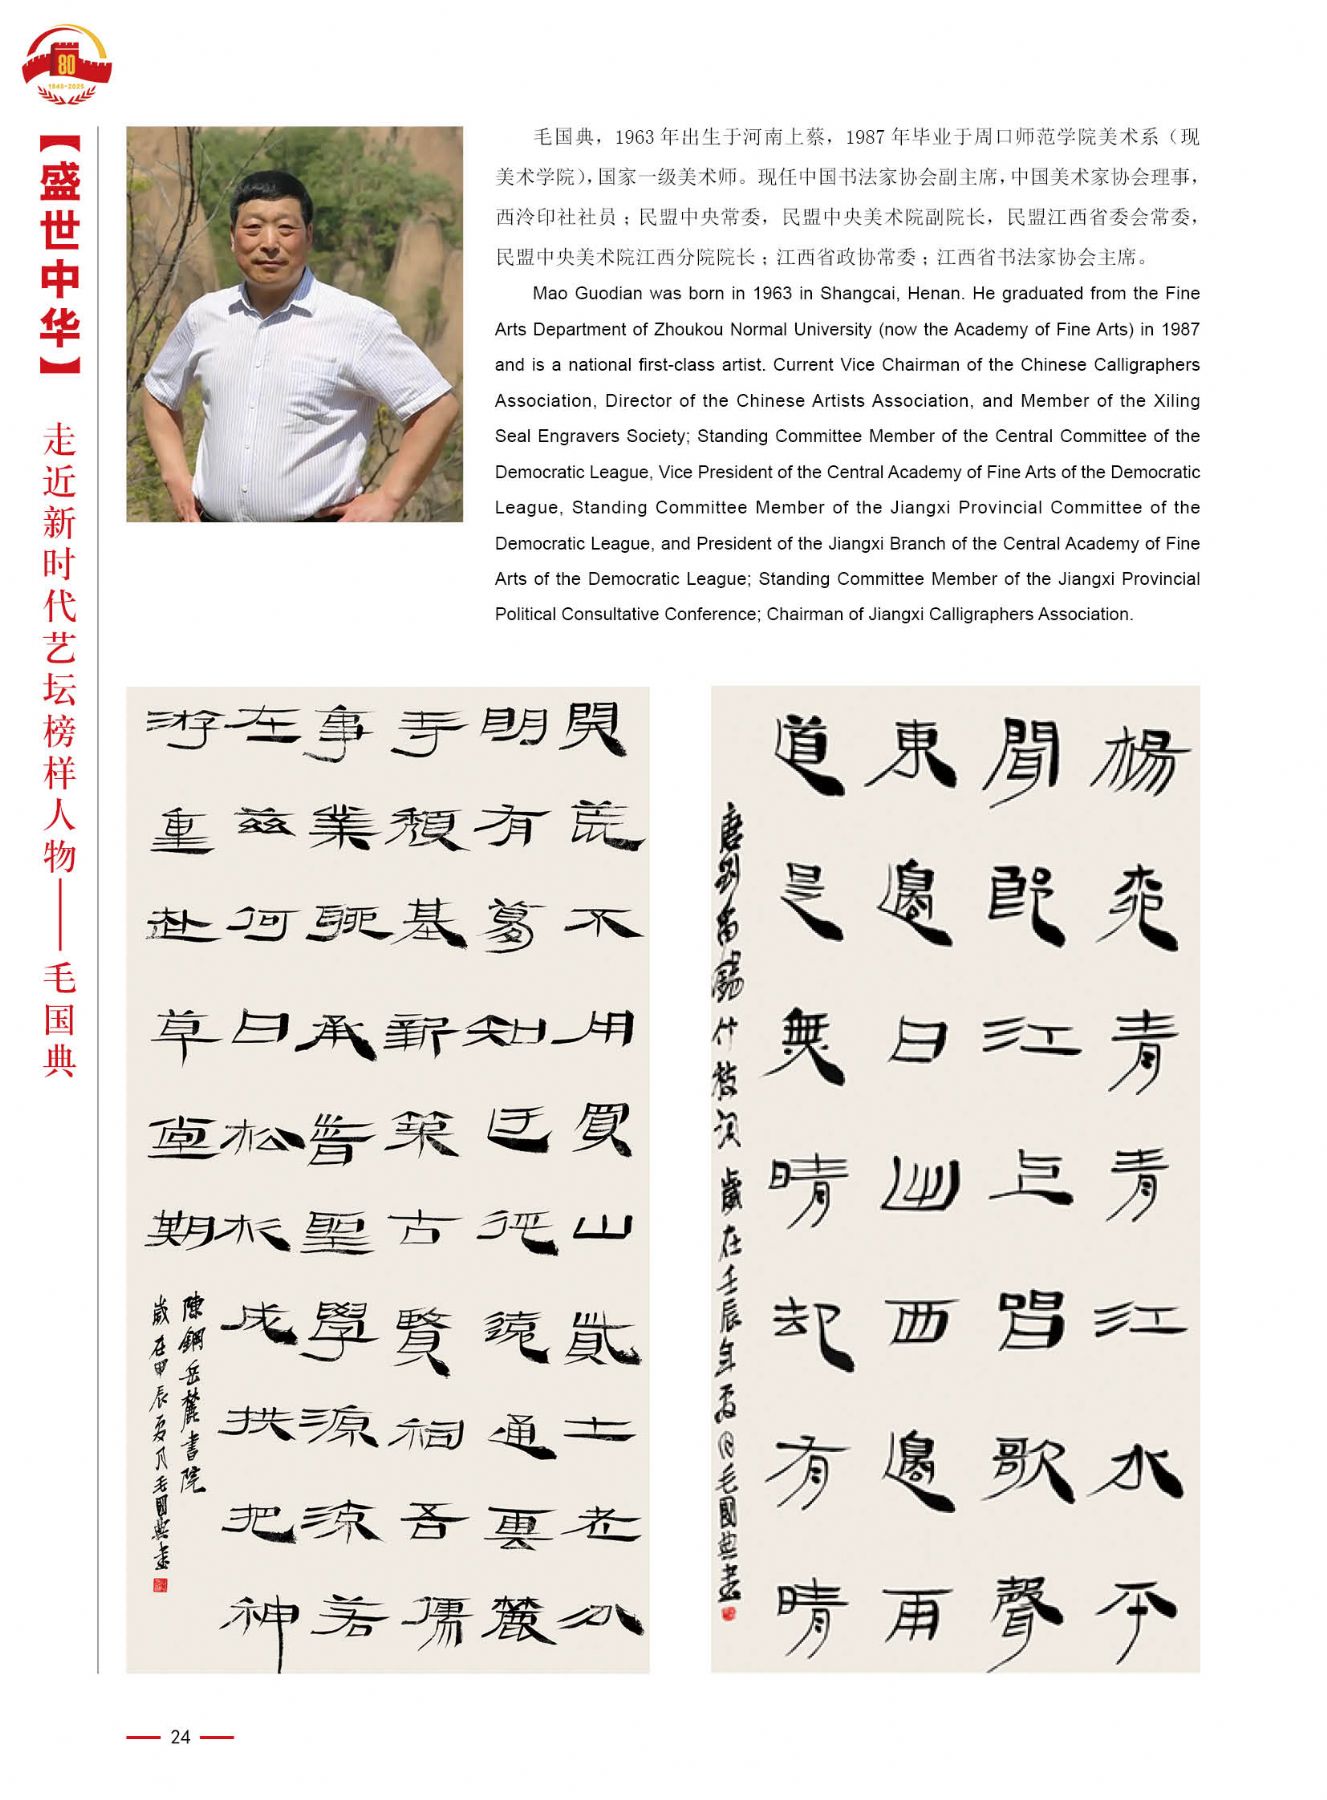 80
1945-2025
【盛世中华】 走近新时代艺坛榜样人物——毛国典
毛国典，1963 年出生于河南上蔡，1987 年毕业于周口师范学院美术系（现
美术学院），国家一级美术师。现任中国书法家协会副主席，中国美术家协会理事，
西泠印社社员；民盟中央常委，民盟中央美术院副院长，民盟江西省委会常委，
民盟中央美术院江西分院院长；江西省政协常委；江西省书法家协会主席。
Mao Guodian was born in 1963 in Shangcai, Henan. He graduated from the Fine
Arts Department of Zhoukou Normal University (now the Academy of Fine Arts) in 1987
and is a national first-class artist. Current Vice Chairman of the Chinese Calligraphers
Association, Director of the Chinese Artists Association, and Member of the Xiling
Seal Engravers Society; Standing Committee Member of the Central Committee of the
Democratic League, Vice President of the Central Academy of Fine Arts of the Democratic
League, Standing Committee Member of the Jiangxi Provincial Committee of the
Democratic League, and President of the Jiangxi Branch of the Central Academy of Fine
Arts of the Democratic League; Standing Committee Member of the Jiangxi Provincial
Political Consultative Conference; Chairman of Jiangxi Calligraphers Association.
開荒不用買山貲士老分
明有葛知迂徑遠通雲麓
寺頹基新築古賢祠吾儒
事業聊承昔聖學源流若
在茲何日松杉成拱把神
游重赴草堂期
陳鋼岳麓書院
歲在甲辰夏月毛國典書
楊柳青青江水平
聞郎江上唱歌聲
東邊日出西邊雨
道是無晴却有晴
唐劉禹錫竹枝詞歲在壬辰年夏月毛國典書
24